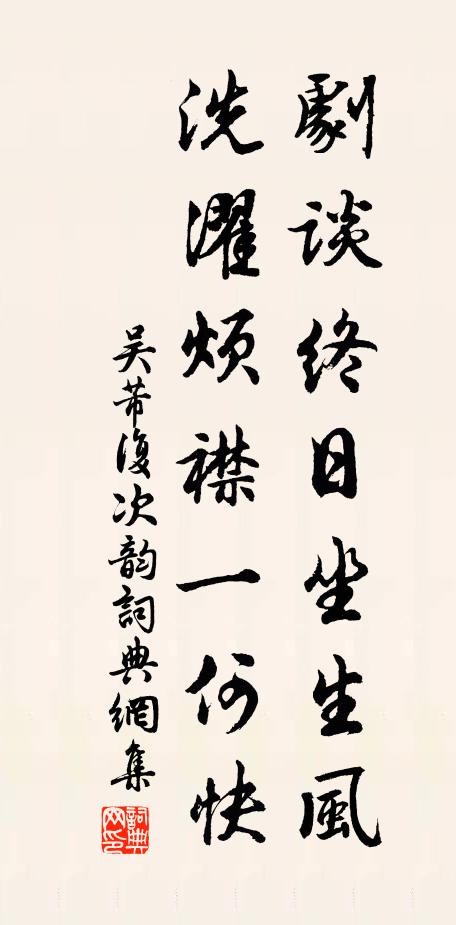 劇談終日坐生風
洗濯煩襟一何快
吴芾復次韵詞典網集
詞典网印